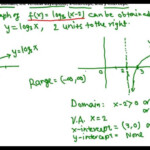 graph of f(x) = log₂(x-2) can be obtained
y = log₂x, 2 units to the right.
y = log₂x
Range = (-∞, ∞)
Domain: x-2>0 or
V.A. x = 2
x-intercept = (3, 0) or
y-intercept = None